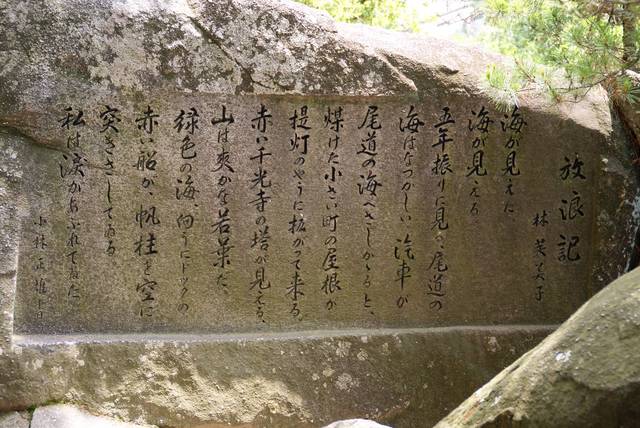 放浪記
林芙美子
海が見えた、
海が見える
五年振りに見る、尾道の
海はなつかしい、汽車が
尾道の海へさしかゝると、
煤けた小さい町の屋根が
提灯のやうに拡がつて来る。
赤い千光寺の塔が見える、
山は爽かな若葉だ、
緑色の海、向うにドックの
赤い船が、帆柱を空に
突きさしてゐる。
私は涙があふれてゐた。
小林正雄